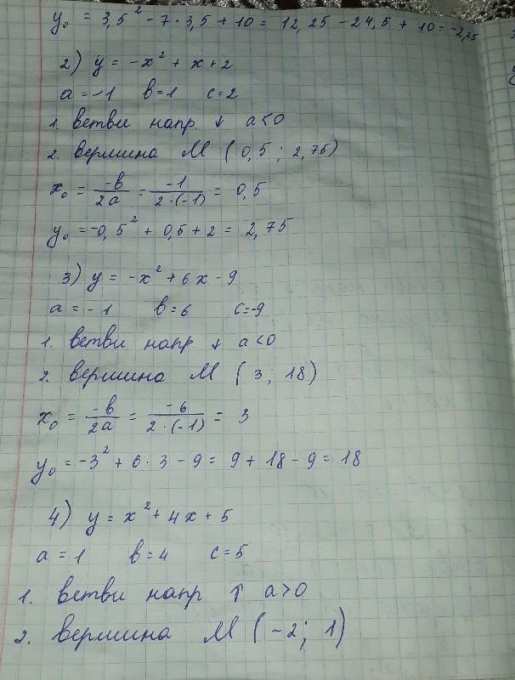 y₀ = 3,5² - 7 · 3,5 + 10 = 12,25 - 24,5 + 10 = -2,25
2) y = -x² + x + 2
a = -1 в = 1 c = 2
1. ветви напр ↓ a < 0
2. вершина М (0,5 ; 2,75)
x₀ = -в/2a = -1/2·(-1) = 0,5
y₀ = -0,5² + 0,5 + 2 = 2,75
3) y = -x² + 6x - 9
a = -1 в = 6 c = -9
1. ветви напр ↓ a < 0
2. вершина М (3; 18)
x₀ = -в/2a = -6/2·(-1) = 3
y₀ = -3² + 6 · 3 - 9 = 9 + 18 - 9 = 18
4) y = x² + 4x + 5
a = 1 в = 4 c = 5
1. ветви напр ↑ a > 0
2. вершина М (-2; 1)